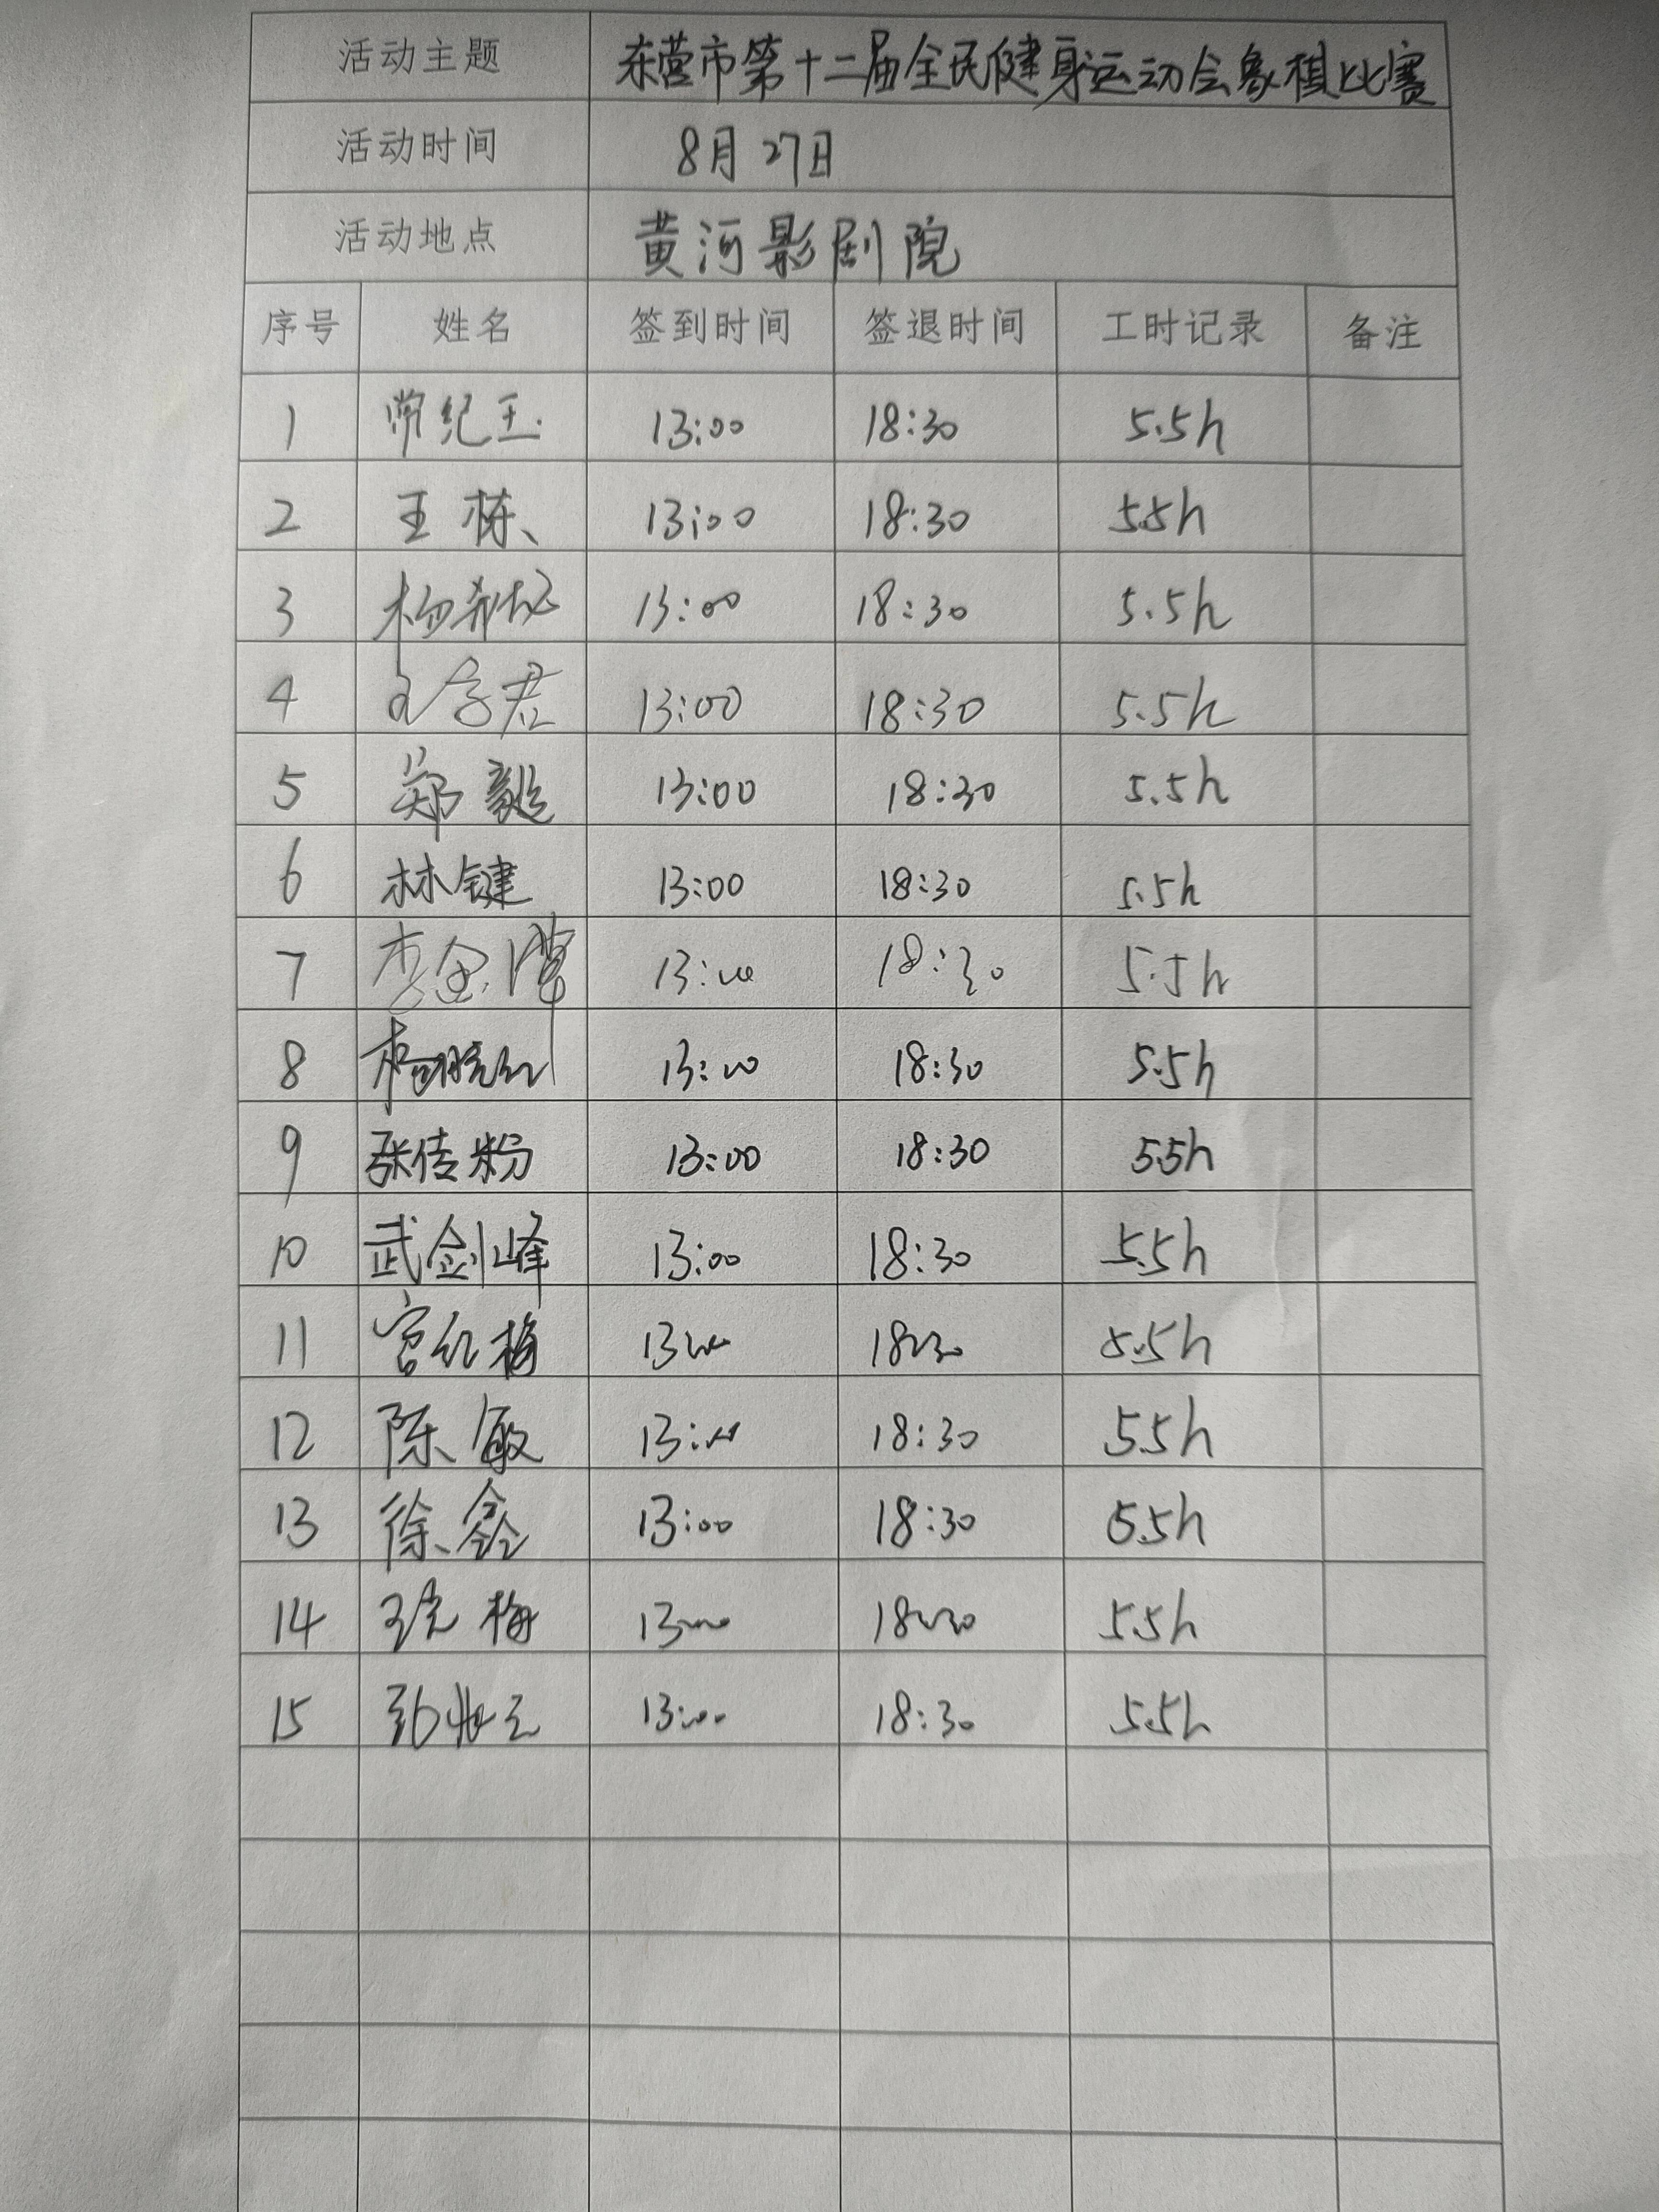 活动主题 东营市第十二届全民健身运动会象棋比赛
活动时间 8月27日
活动地点 黄河影剧院
序号 姓名 签到时间 签退时间 工时记录 备注
1 常纪玉 13:00 18:30 5.5h
2 王栋 13:00 18:30 5.5h
3 杨 13:00 18:30 5.5h
4 君 13:00 18:30 5.5h
5 郑毅 13:00 18:30 5.5h
6 林键 13:00 18:30 5.5h
7 李金潭 13:00 18:30 5.5h
8 杨晓红 13:00 18:30 5.5h
9 张传粉 13:00 18:30 5.5h
10 武剑峰 13:00 18:30 5.5h
11 宫红梅 13:00 18:30 5.5h
12 陈敏 13:00 18:30 5.5h
13 徐鑫 13:00 18:30 5.5h
14 梅 13:00 18:30 5.5h
15 13:00 18:30 5.5h